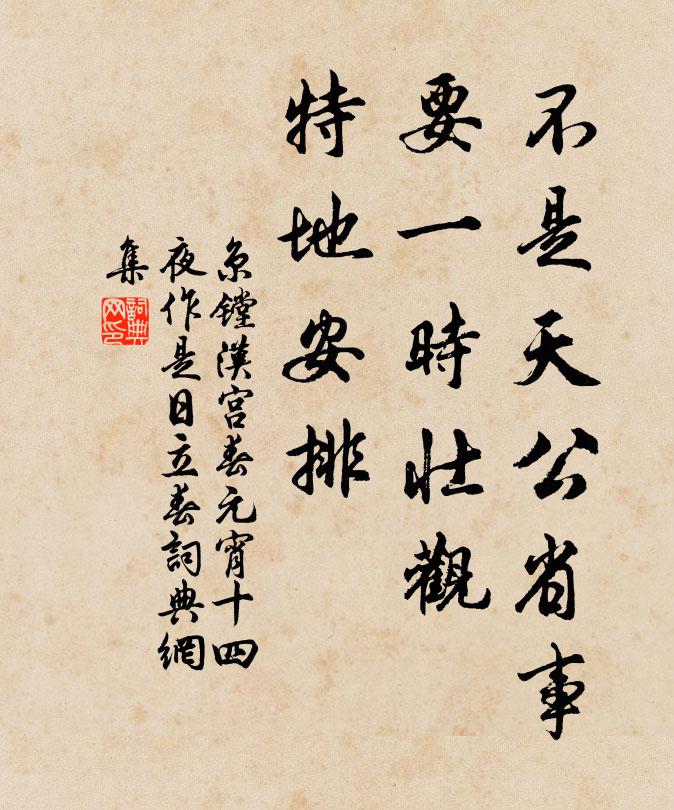 不是天公省事
要一時壯觀
特地安排
京鏜漢宮春元宵十四
夜作是日立春詞典網
集
詞典網印